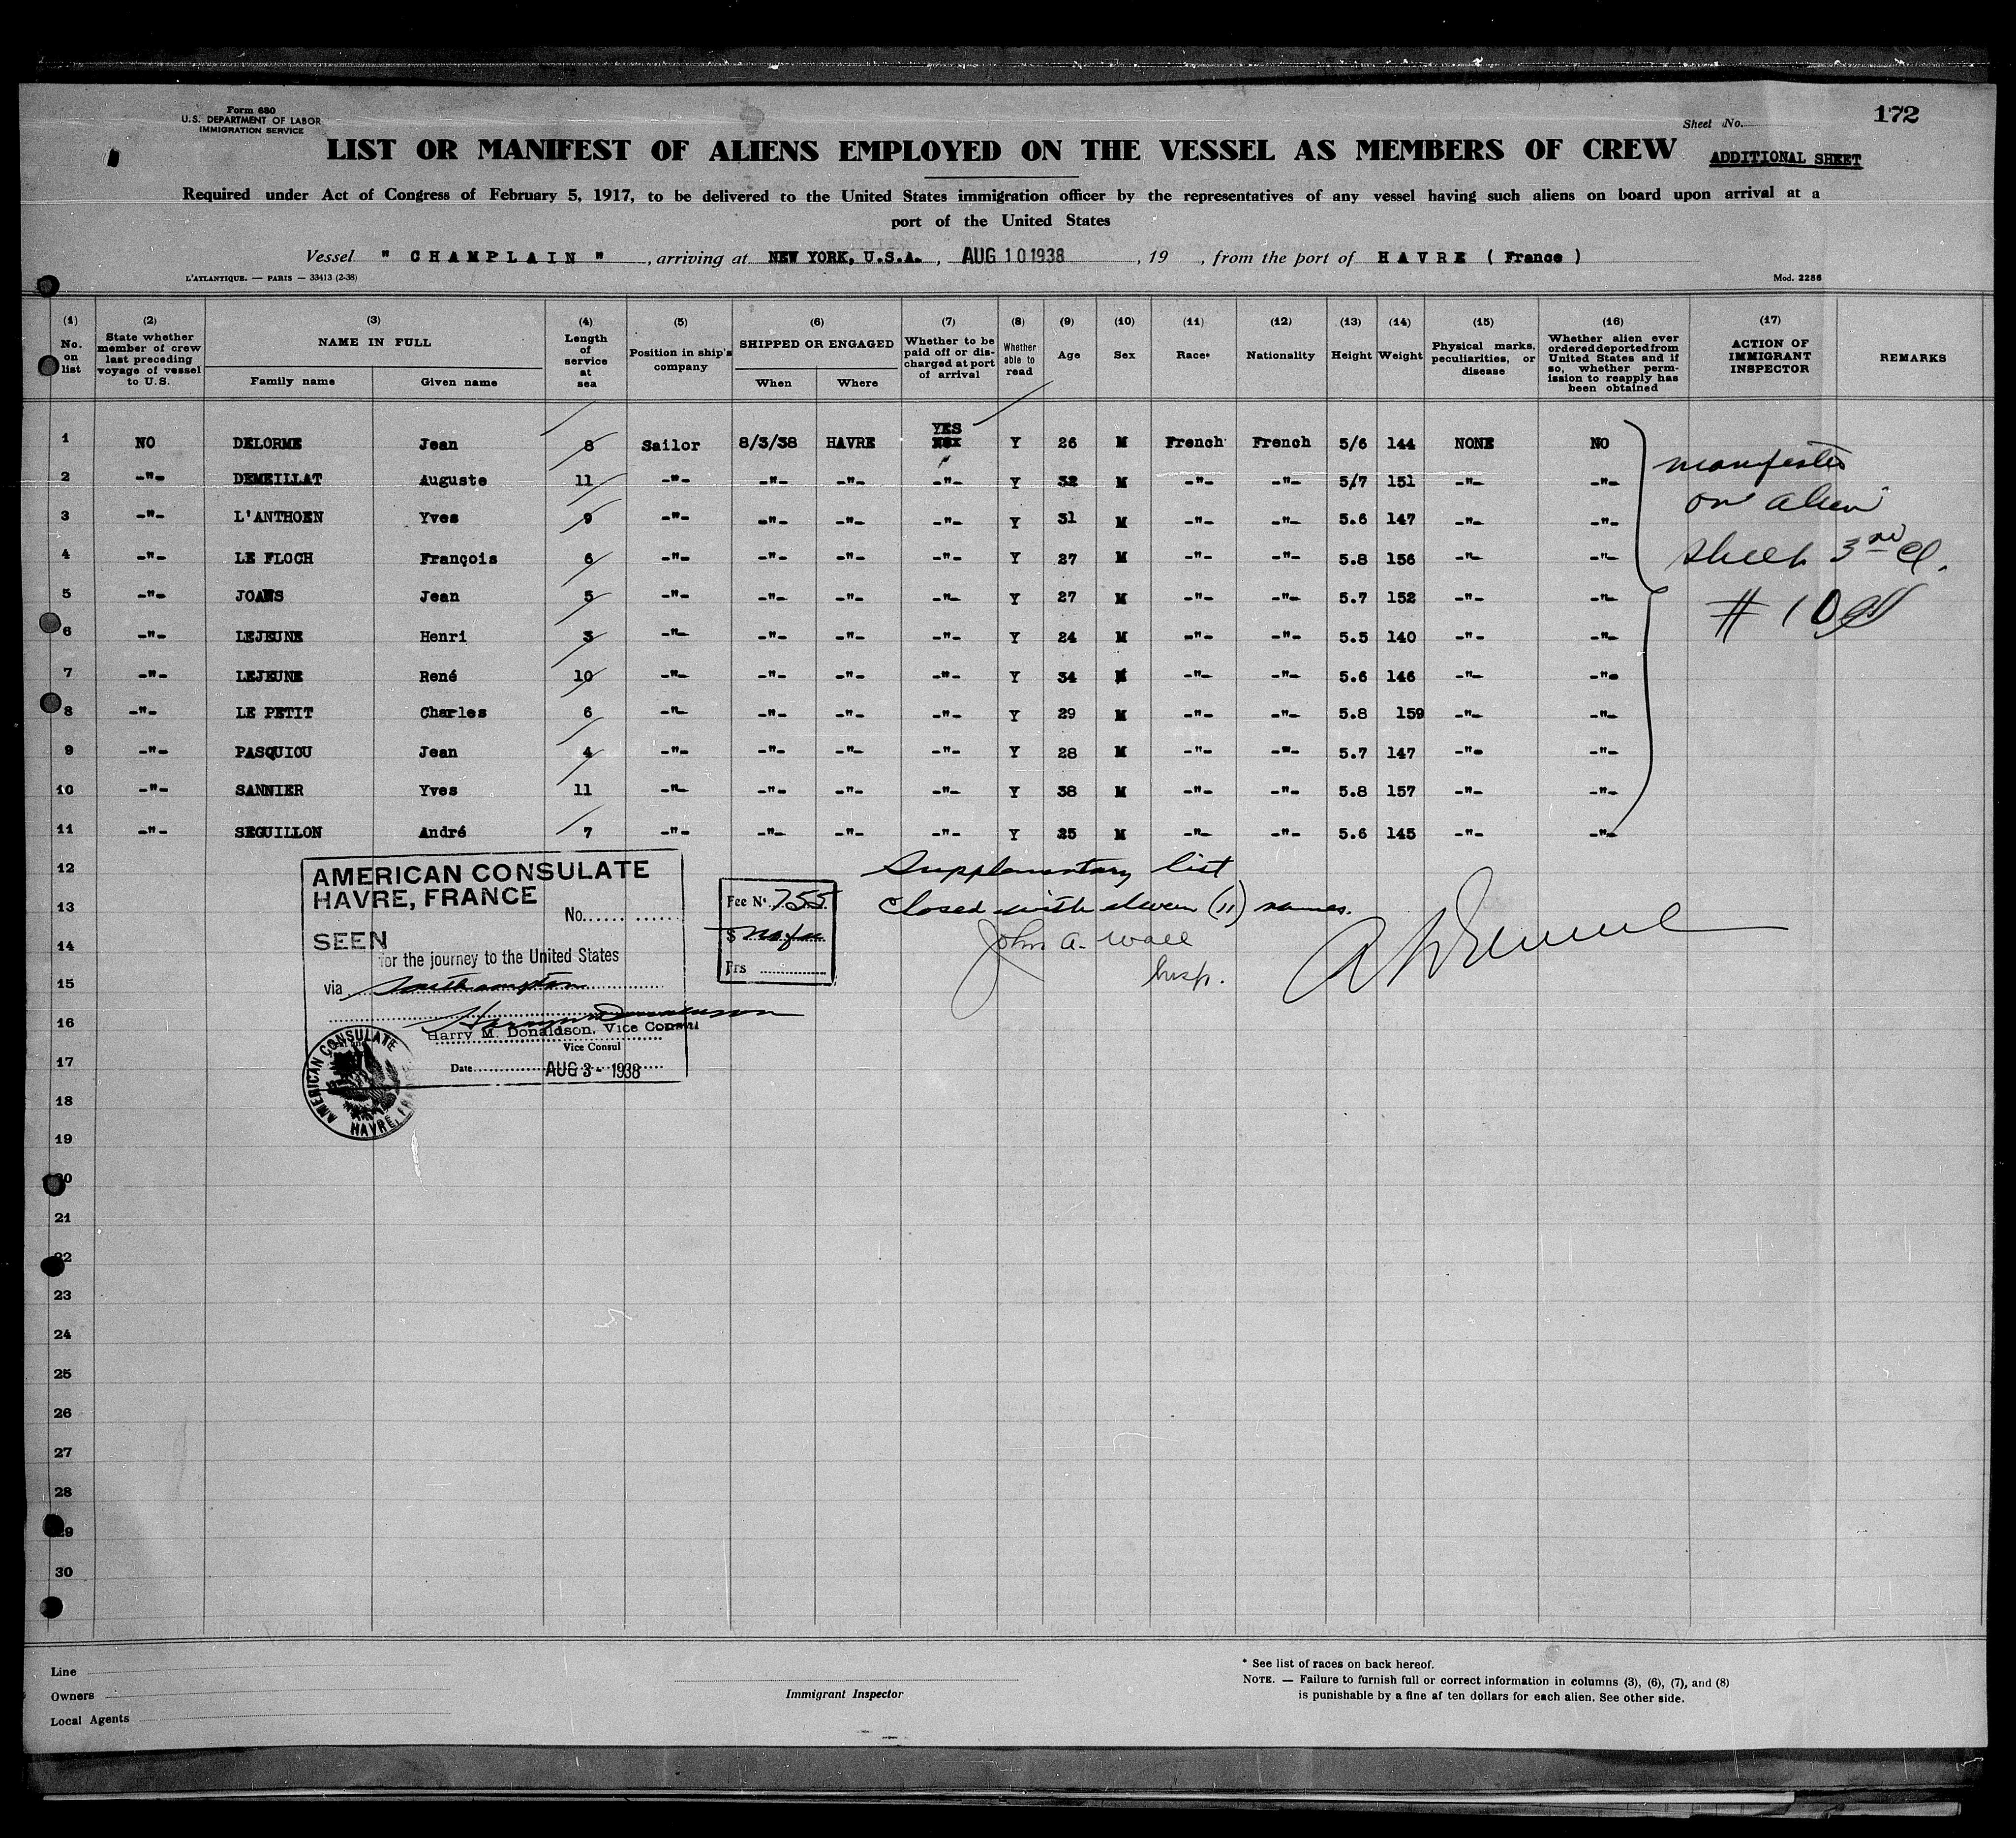 Form 680
U.S. DEPARTMENT OF LABOR
IMMIGRATION SERVICE
172
Sheet No.
LIST OR MANIFEST OF ALIENS EMPLOYED ON THE VESSEL AS MEMBERS OF CREW
ADDITIONAL SHEET
Required under Act of Congress of February 5, 1917, to be delivered to the United States immigration officer by the representatives of any vessel having such aliens on board upon arrival at a
port of the United States
Vessel " CHAMPLAIN ", arriving at NEW YORK, U.S.A., AUG 10 1938, 19 , from the port of HAVRE ( France )
L'ATLANTIQUE. — PARIS — 33413 (2-38)
Mod. 2286
(1) No. on list
(2) State whether member of crew last preceding voyage of vessel to U.S.
(3) NAME IN FULL Family name Given name
(4) Length of service at sea
(5) Position in ship's company
(6) SHIPPED OR ENGAGED When Where
(7) Whether to be paid off or discharged at port of arrival
(8) Whether able to read
(9) Age
(10) Sex
(11) Race*
(12) Nationality
(13) Height
(14) Weight
(15) Physical marks, peculiarities, or disease
(16) Whether alien ever ordered deported from United States and if so, whether permission to reapply has been obtained
(17) ACTION OF IMMIGRANT INSPECTOR
REMARKS
1 NO DELORME Jean 8 Sailor 8/3/38 HAVRE YES Y 26 M French French 5/6 144 NONE NO
2 -"- DEMEILLAT Auguste 11 -"- -"- -"- -"- Y 32 M -"- -"- 5/7 151 -"- -"-
3 -"- L'ANTHOEN Yves 9 -"- -"- -"- -"- Y 31 M -"- -"- 5.6 147 -"- -"-
4 -"- LE FLOCH François 6 -"- -"- -"- -"- Y 27 M -"- -"- 5.8 156 -"- -"-
5 -"- JOANS Jean 5 -"- -"- -"- -"- Y 27 M -"- -"- 5.7 152 -"- -"-
6 -"- LEJEUNE Henri 3 -"- -"- -"- -"- Y 24 M -"- -"- 5.5 140 -"- -"-
7 -"- LEJEUNE René 10 -"- -"- -"- -"- Y 34 M -"- -"- 5.6 146 -"- -"-
8 -"- LE PETIT Charles 6 -"- -"- -"- -"- Y 29 M -"- -"- 5.8 159 -"- -"-
9 -"- PASQUIOU Jean 4 -"- -"- -"- -"- Y 28 M -"- -"- 5.7 147 -"- -"-
10 -"- SANNIER Yves 11 -"- -"- -"- -"- Y 38 M -"- -"- 5.8 157 -"- -"-
11 -"- SEGUILLON André 7 -"- -"- -"- -"- Y 25 M -"- -"- 5.6 145 -"- -"-
manifested
on alien
sheet 3rd Cl.
# 10
12
13
14
15
16
17
18
19
20
21
22
23
24
25
26
27
28
29
30
AMERICAN CONSULATE
HAVRE, FRANCE
No.
SEEN
for the journey to the United States
via Southampton
Harry M. Donaldson, Vice Consul
Vice Consul
Date AUG 3 - 1938
AMERICAN CONSULATE
HAVRE, FRANCE
Fee No. 755
$ no fee
Frs
Supplementary list
closed with eleven (11) names.
John A. Wall
Insp.
Line
Owners
Local Agents
Immigrant Inspector
* See list of races on back hereof.
NOTE. — Failure to furnish full or correct information in columns (3), (6), (7), and (8)
is punishable by a fine af ten dollars for each alien. See other side.